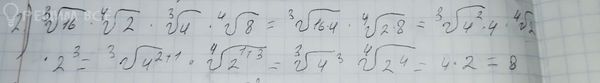 2) ³√16 · ⁴√2 · ³√4 · ⁴√8 = ³√16·4 · ⁴√2·8 = ³√4²·4 · ⁴√2 ·
· 2³ = ³√4²⁺¹ · ⁴√2¹⁺³ = ³√4³ ⁴√2⁴ = 4·2 = 8